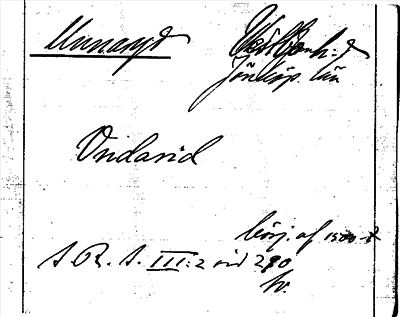 Unnaryd Västbo h:d
Jönköp. län
Vridarid
börj. af 1500-t
A.R.A. III:2 vid 290